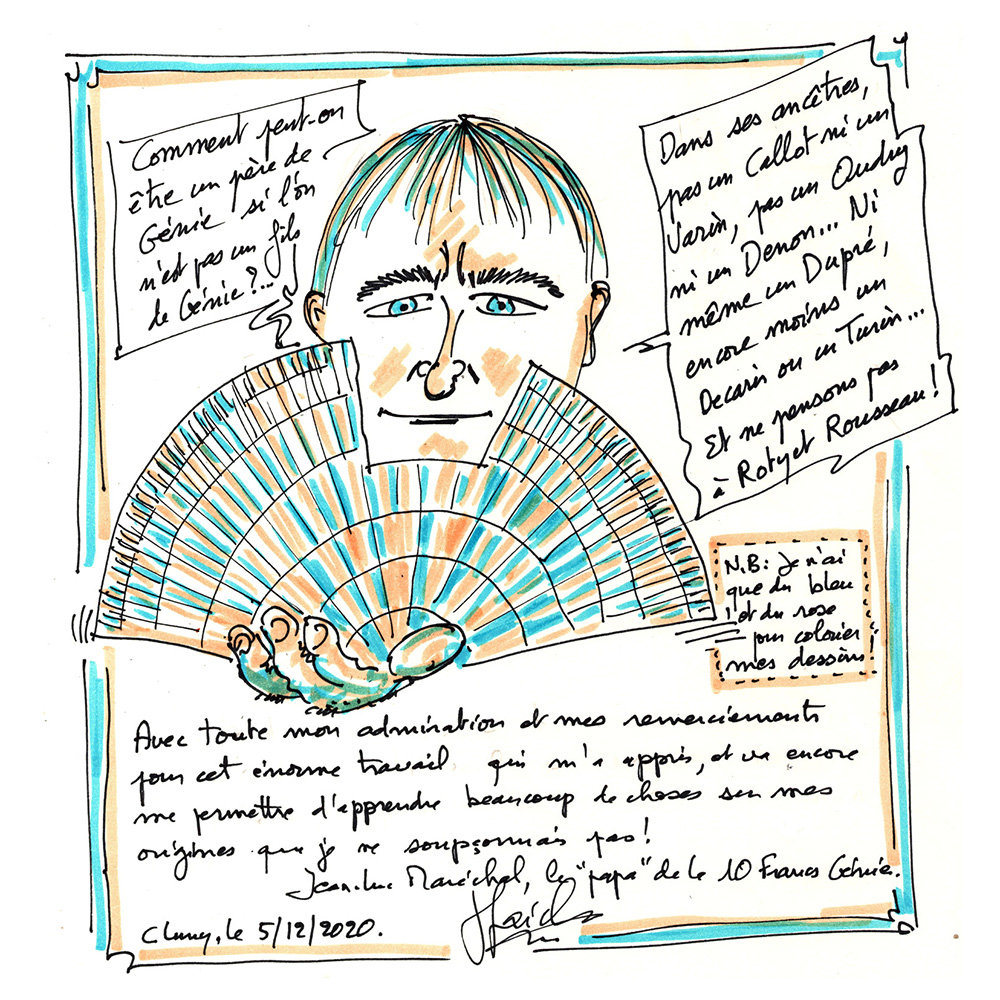 Comment peut-on
être un père de
Génie si l'on
n'est pas un fils
de Génie?...
Dans ses ancêtres,
pas un Callot ni un
Varin, pas un Oudry
ni un Denon... Ni
même un Dupré,
encore moins un
Decaris ou un Turin...
Et ne pensons pas
à Roty et Rousseau!
N.B: Je n'ai
que du bleu
et du rose
pour colorier
mes dessins!
Avec toute mon admiration et mes remerciements
pour cet énorme travail qui m'a appris, et va encore
me permettre d'apprendre beaucoup de choses sur mes
origines que je ne soupçonnais pas!
Jean-Luc Maréchal, le "papa" de la 10 Francs Génie.
Cluny, le 5/12/2020.